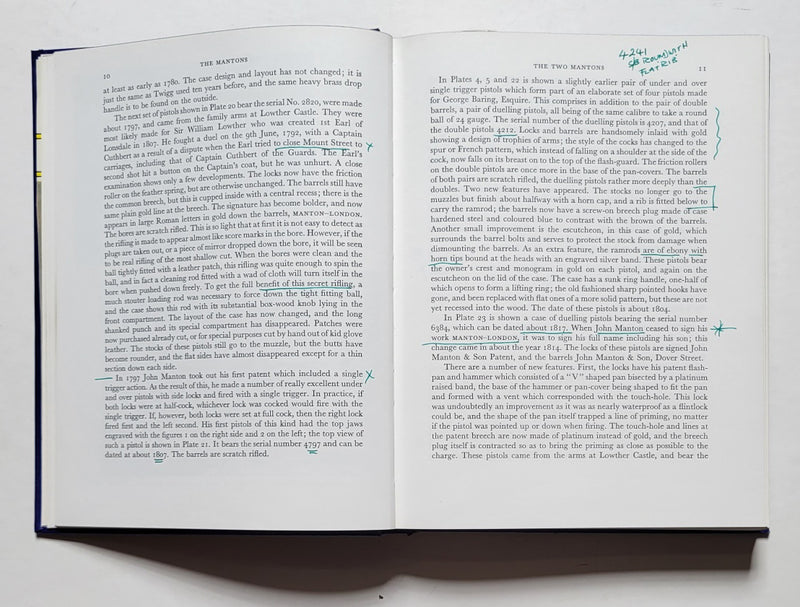 10
THE MANTONS
at least as early as 1780. The case design and layout has not changed; it is
just the same as Twigg used ten years before, and the same heavy brass drop
handle is to be found on the outside.
The next set of pistols shown in Plate 20 bear the serial No. 2820, were made
about 1797, and came from the family arms at Lowther Castle. They were
most likely made for Sir William Lowther who was created 1st Earl of
Lonsdale in 1807. He fought a duel on the 9th June, 1792, with a Captain
Cuthbert as a result of a dispute when the Earl tried to close Mount Street to
carriages, including that of Captain Cuthbert of the Guards. The Earl's
second shot hit a button on the Captain's coat, but he was unhurt. A close
examination shows only a few developments. The locks now have the friction
roller on the feather spring, but are otherwise unchanged. The barrels still have
the common breech, but this is cupped inside with a central recess; there is the
same plain gold line at the breech. The signature has become bolder, and now
appears in large Roman letters in gold down the barrels, MANTON–LONDON.
The bores are scratch rifled. This is so light that at first it is not easy to detect as
the rifling is made to appear almost like score marks in the bore. However, if the
plugs are taken out, or a piece of mirror dropped down the bore, it will be seen
to be real rifling of the most shallow cut. When the bores were clean and the
ball tightly fitted with a leather patch, this rifling was quite enough to spin the
ball, and in fact a cleaning rod fitted with a wad of cloth will turn itself in the
bore when pushed down freely. To get the full benefit of this secret rifling, a
much stouter loading rod was necessary to force down the tight fitting ball,
and the case shows this rod with its substantial box-wood knob lying in the
front compartment. The layout of the case has now changed, and the long
shanked punch and its special compartment has disappeared. Patches were
now purchased already cut, or for special purposes cut by hand out of kid glove
leather. The stocks of these pistols still go to the muzzle, but the butts have
become rounder, and the flat sides have almost disappeared except for a thin
section down each side.
In 1797 John Manton took out his first patent which included a single
trigger action. As the result of this, he made a number of really excellent under
and over pistols with side locks and fired with a single trigger. In practice, if
both locks were at half-cock, whichever lock was cocked would fire with the
single trigger. If, however, both locks were set at full cock, then the right lock
fired first and the left second. His first pistols of this kind had the top jaws
engraved with the figures 1 on the right side and 2 on the left; the top view of
such a pistol is shown in Plate 21. It bears the serial number 4797 and can be
dated at about 1807. The barrels are scratch rifled.
4241
S/B ROUND WITH
FLAT RIB
THE TWO MANTONS
11
In Plates 4, 5 and 22 is shown a slightly earlier pair of under and over
single trigger pistols which form part of an elaborate set of four pistols made
for George Baring, Esquire. This comprises in addition to the pair of double
barrels, a pair of duelling pistols, all being of the same calibre to take a round
ball of 24 gauge. The serial number of the duelling pistols is 4207, and that of
the double pistols 4212. Locks and barrels are handsomely inlaid with gold
showing a design of trophies of arms; the style of the cocks has changed to the
spur or French pattern, which instead of falling on a shoulder at the side of the
cock, now falls on its breast on to the top of the flash-guard. The friction rollers
on the double pistols are once more in the base of the pan-covers. The barrels
of both pairs are scratch rifled, the duelling pistols rather more deeply than the
doubles. Two new features have appeared. The stocks no longer go to the
muzzles but finish about halfway with a horn cap, and a rib is fitted below to
carry the ramrod; the barrels now have a screw-on breech plug made of case
hardened steel and coloured blue to contrast with the brown of the barrels.
Another small improvement is the escutcheon, in this case of gold, which
surrounds the barrel bolts and serves to protect the stock from damage when
dismounting the barrels. As an extra feature, the ramrods are of ebony with
horn tips bound at the heads with an engraved silver band. These pistols bear
the owner's crest and monogram in gold on each pistol, and again on the
escutcheon on the lid of the case. The case has a sunk ring handle, one-half of
which opens to form a lifting ring; the old fashioned sharp pointed hooks have
gone, and been replaced with flat ones of a more solid pattern, but these are not
yet recessed into the wood. The date of these pistols is about 1804.
In Plate 23 is shown a case of duelling pistols bearing the serial number
6384, which can be dated about 1817. When John Manton ceased to sign his
work MANTON–LONDON, it was to sign his full name including his son; this
change came in about the year 1814. The locks of these pistols are signed John
Manton & Son Patent, and the barrels John Manton & Son, Dover Street.
There are a number of new features. First, the locks have his patent flash-
pan and hammer which consisted of a "V" shaped pan bisected by a platinum
raised band, the base of the hammer or pan-cover being shaped to fit the pan
and formed with a vent which corresponded with the touch-hole. This lock
was undoubtedly an improvement as it was as nearly waterproof as a flintlock
could be, and the shape of the pan itself trapped a line of priming, no matter
if the pistol was pointed up or down when firing. The touch-hole and lines at
the patent breech are now made of platinum instead of gold, and the breech
plug itself is contracted so as to bring the priming as close as possible to the
charge. These pistols came from the arms at Lowther Castle, and bear the